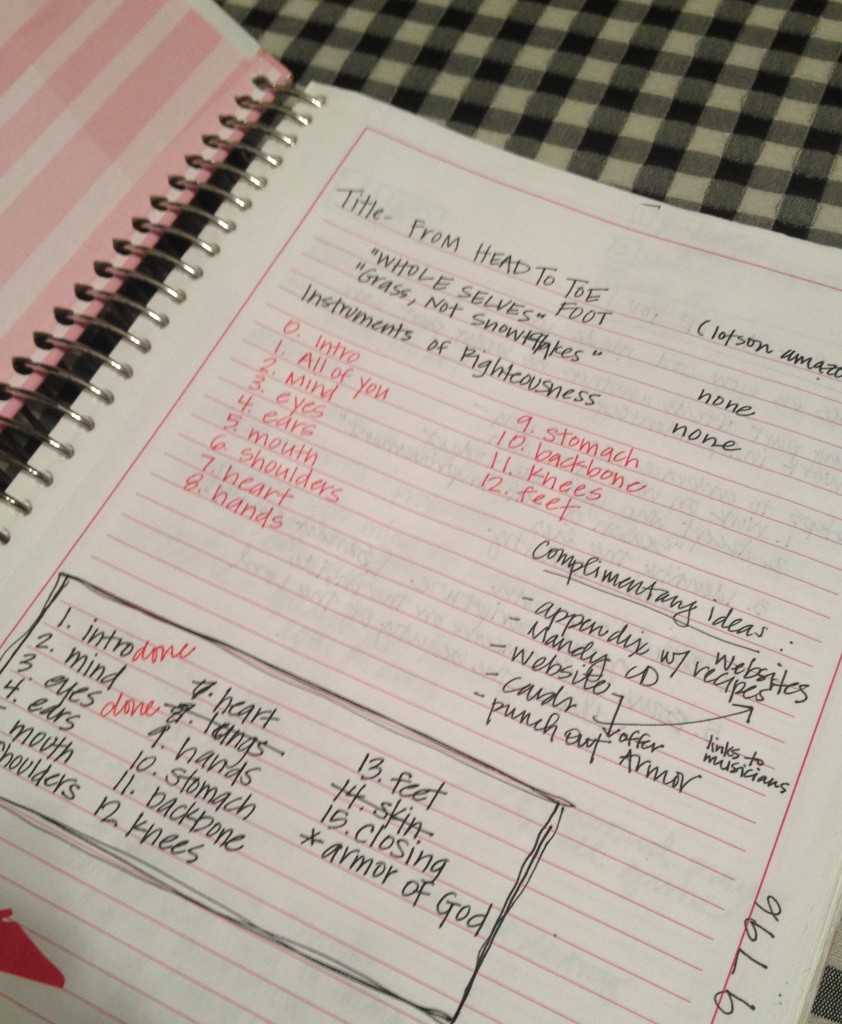 Title- FROM HEAD TO TOE
"WHOLE SELVES" FOOT
"Grass, Not Snowflakes"
Instruments of Righteousness
(lotson amazo
none
none
0. Intro
1. All of you
2. Mind
3. eyes
4. ears
5. mouth
6. shoulders
7. heart
8. hands
9. stomach
10. backbone
11. knees
12. feet
Complimentary ideas:
- appendix w/ recipes websites
- Mandy CD
- website
- cards
- punch out Armor
offer
links to
musicians
1. intro done
2. mind
3. eyes done
4. ears
mouth
shoulders
7. heart
8. lungs
9. hands
10. stomach
11. backbone
12. knees
13. feet
14. skin
15. closing
*armor of God
9796